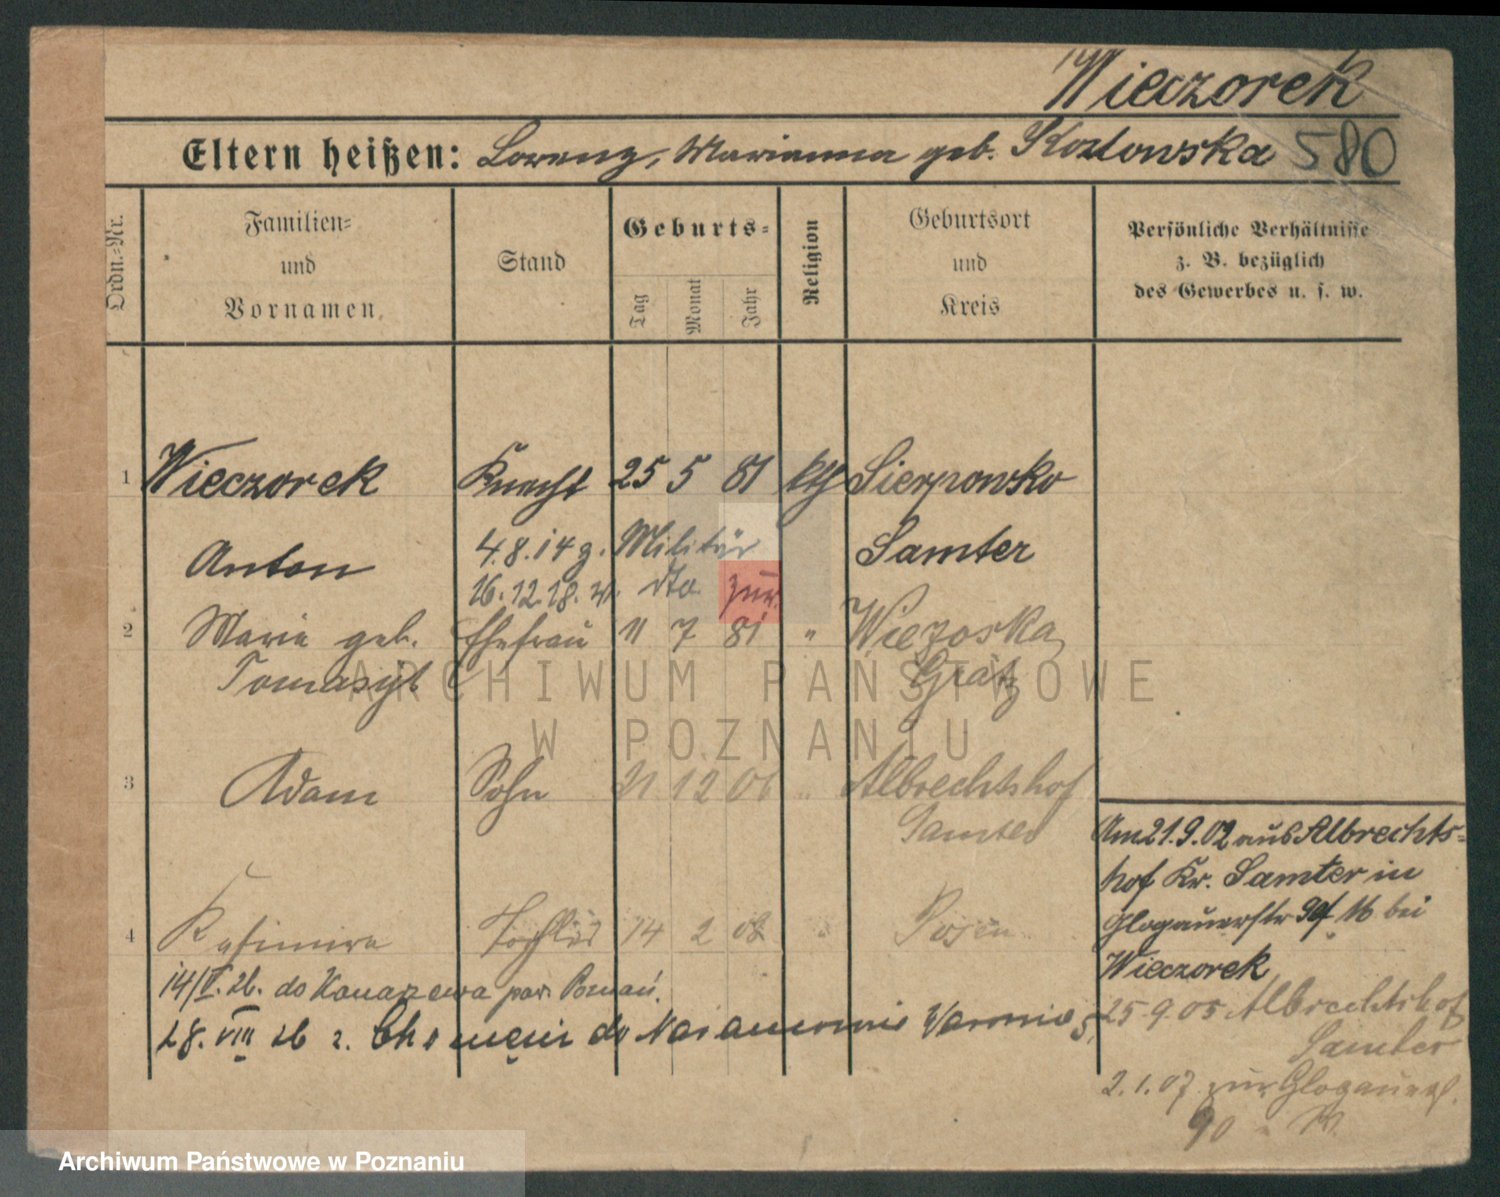 Wieczorek
Eltern heißen: Lorenz, Marianna geb. Kozlowska 580
Ordn.-Nr.
Familien- und Vornamen
Stand
Geburts-
Tag Monat Jahr
Religion
Geburtsort und Kreis
Persönliche Verhältnisse
z. B. bezüglich
des Gewerbes u. s. w.
1 Wieczorek Knecht 25 5 81 kth Sierpowsko
Anton 4.8.14 g. Militär Samter
16.12.18. dto zur.
2 Marie geb. Ehefrau 11 7 81 "
Gratz
3 Adam Sohn 12 " Albrechtshof
Samter
4 Kasimira Tochter 14 2 08 " Posen
14/V. 26. do Konarzewa pow. Poznań.
28. VIII 26 z. do
Am 21.9.02 aus Albrechts-
hof Kr. Samter in
Glogauerstr 90 bei
Wieczorek
25.9.05 Albrechtshof
Samter
2.1.07 zur Glogauerst.
90
ARCHIWUM PAŃSTWOWE
W POZNANIU
Archiwum Państwowe w Poznaniu